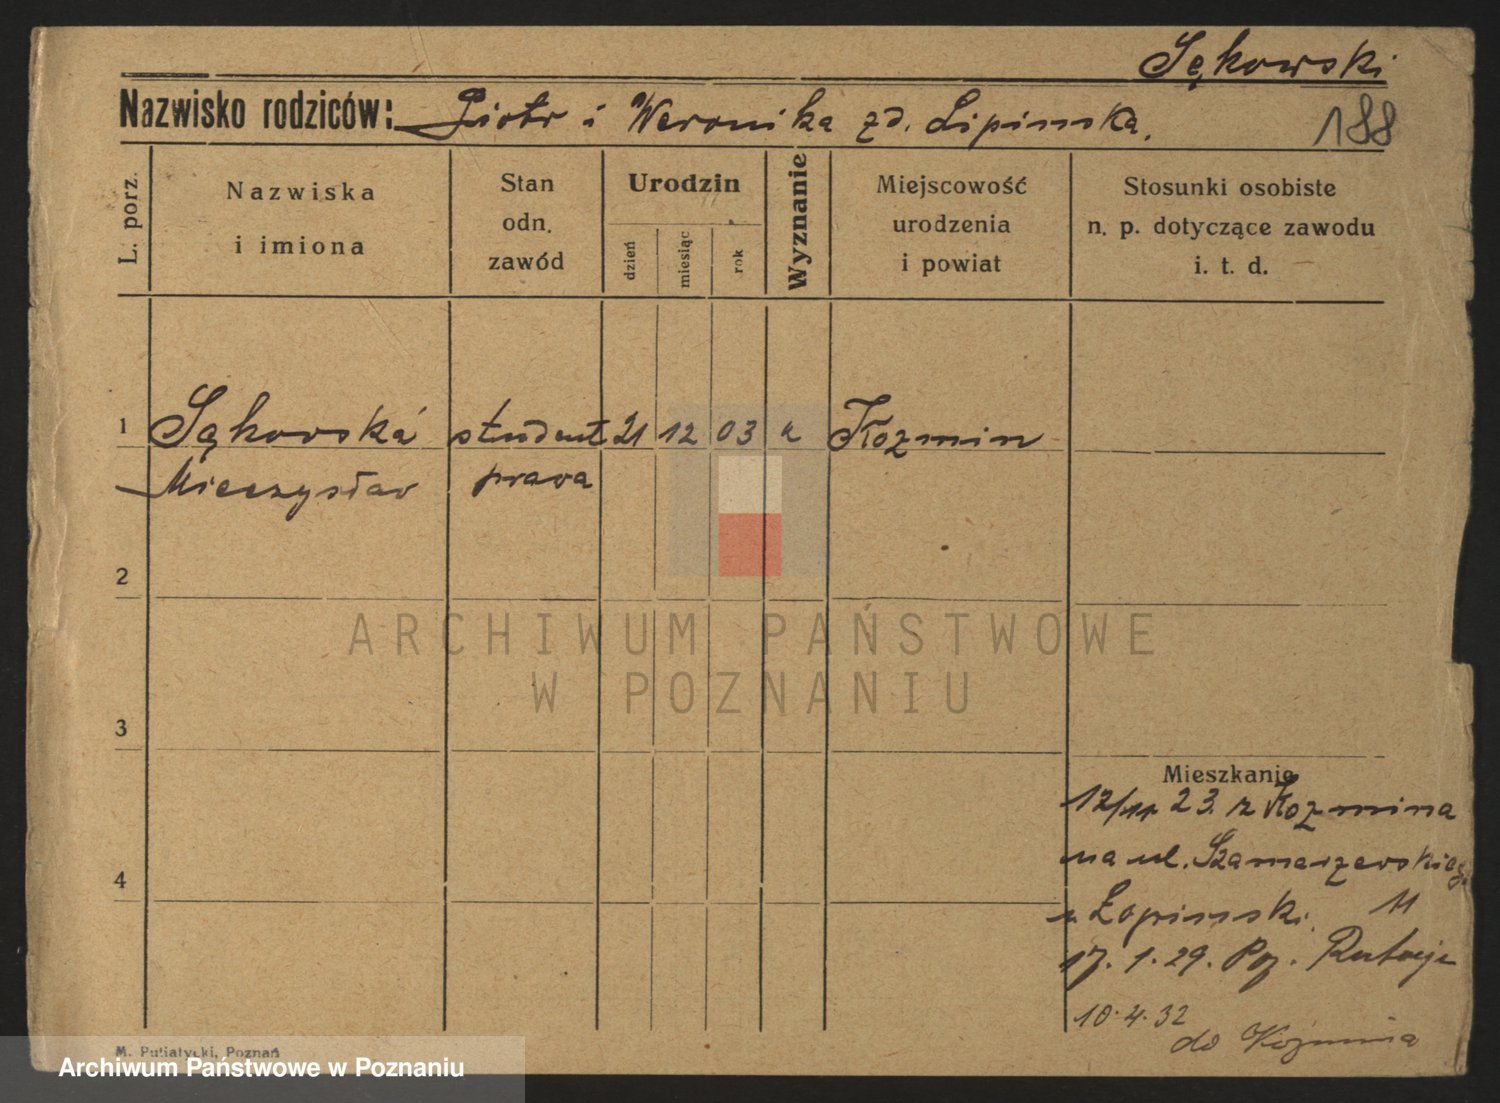 Sękowski
Nazwisko rodziców: Piotr i Weronika zd. Lipinska.
188
L. porz.
Nazwiska
i imiona
Stan
odn.
zawód
Urodzin
dzień
miesiąc
rok
Wyznanie
Miejscowość
urodzenia
i powiat
Stosunki osobiste
n. p. dotyczące zawodu
i. t. d.
1
student 21 12 03 k Kozmin
Mieczysław prawa
2
ARCHIWUM PAŃSTWOWE
W POZNANIU
3
Mieszkanie
12/11 23. z Kozmina
na ul.
4
11
17. 1. 29.
10.4.32
do Koźmina
M. Putiatycki, Poznań
Archiwum Państwowe w Poznaniu